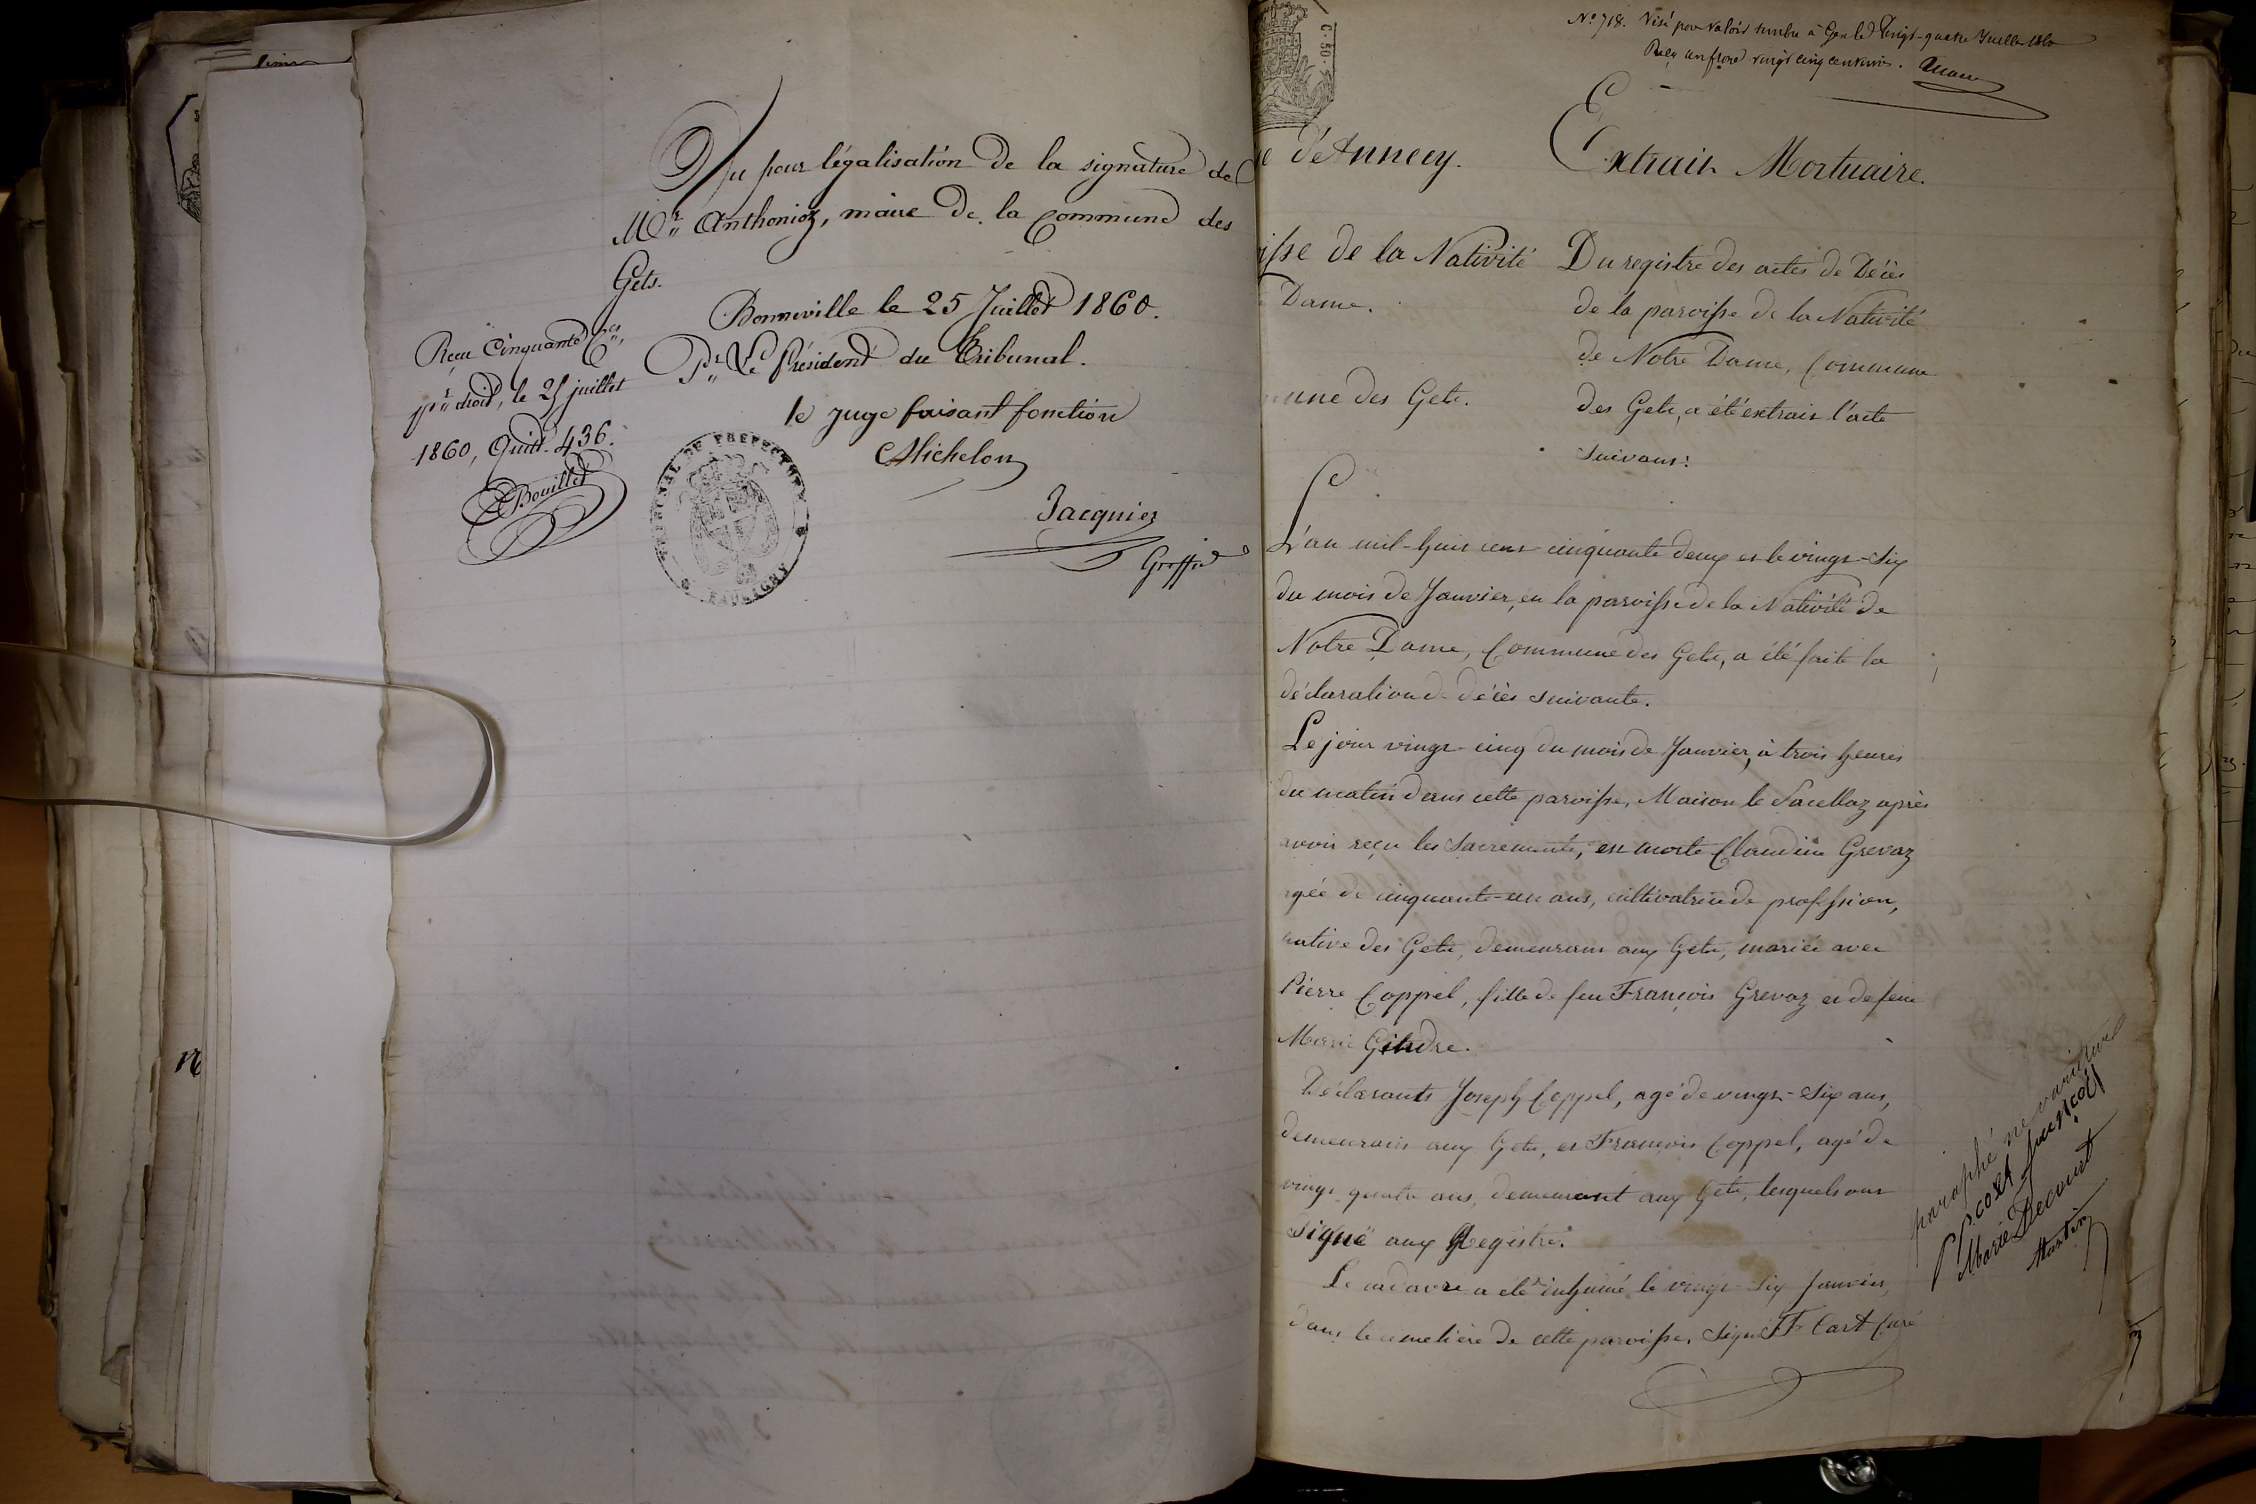 Vu pour légalisation de la signature de
Mr. Anthonioz, maire de la Commune des
Gets.
Bonneville le 25 Juillet 1860.
Pr. Le Président du Tribunal.
le juge faisant fonction
Michelon
Jacquier
Greffier
Reçu Cinquante Ces.
pr. droit, le 25 juillet
1860, Quitt. 436.
Bouillet
TRIBUNAL DE PREFECTURE
FAUCIGNY
C. 50
No 718. Visé pour valoir timbre à Gex le Vingt-quatre Juillet 1860
Reçu un franc vingt cinq centimes.
d'Annecy.
Extrait Mortuaire.
de la Nativité
Dame.
des Gets.
Du registre des actes de Décès
de la paroisse de la Nativité
de Notre Dame, Commune
des Gets, a été extrait l'acte
suivant:
L'an mil-huit cent cinquante deux et le vingt-six
du mois de Janvier, en la paroisse de la Nativité de
Notre Dame, Commune des Gets, a été faite la
déclaration de décès suivante.
Le jour vingt-cinq du mois de Janvier, à trois heures
du matin dans cette paroisse, Maison le après
avoir reçu les Sacrements, est morte Claudine Grevaz
agée de cinquante-un ans, cultivatrice de profession,
native des Gets, demeurant aux Gets, mariée avec
Pierre Coppel, fille de feu François Grevaz et de feue
Marie Gindre.
Déclarants Joseph Coppel, agé de vingt-six ans,
demeurant aux Gets, et François Coppel, agé de
vingt quatre ans, demeurant aux Gets, lesquels ont
signé aux Registre.
Le cadavre a été inhumé le vingt-six Janvier,
dans le cimetière de cette paroisse. Signé F. Cart Curé
paraphé ne varietur
françois
Marie Decourt
Martin